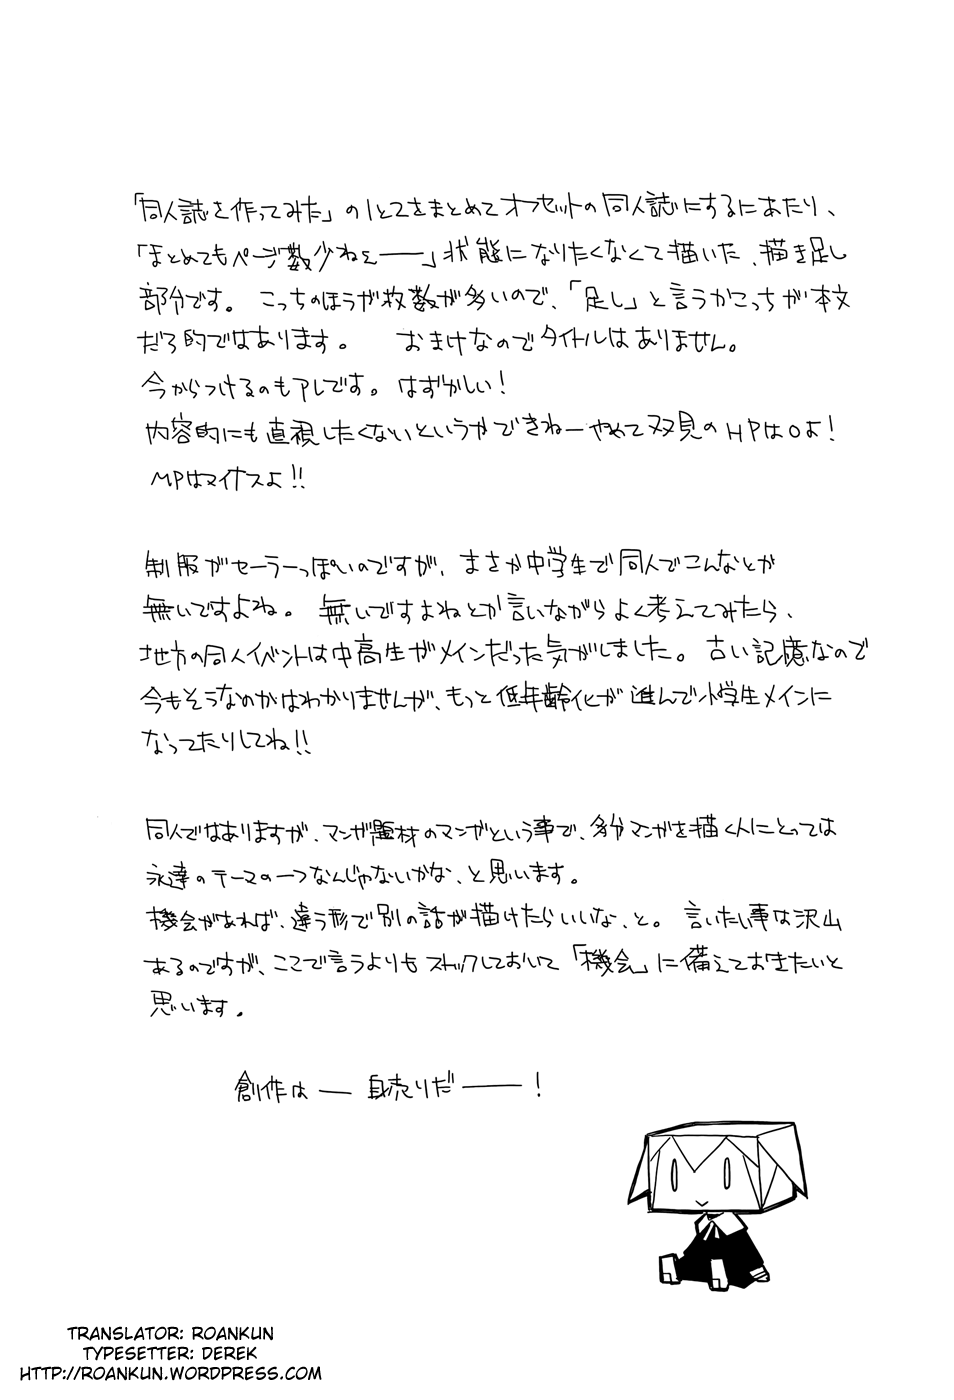 「同人誌を作ってみた」の1と2をまとめてオフセットの同人誌にするにあたり、
「まとめてもページ数少ねぇ――」状態になりたくなくて描いた、描き足し
部分です。 こっちのほうが枚数が多いので、「足し」と言うかこっちが本文
だろ的ではあります。 おまけなのでタイトルはありません。
今からつけるのもアレです。はずかしい!
内容的にも直視したくないというかできねーやめて双見のHPは0よ!
MPはマイナスよ!!
制服がセーラーっぽいのですが、まさか中学生で同人でこんなとか
無いですよね。 無いですよねとか言いながらよく考えてみたら、
地方の同人イベントは中高生がメインだった気がしました。古い記憶なので
今もそうなのかはわかりませんが、もっと低年齢化が進んで小学生メインに
なってたりしてね!!
同人ではありますが、マンガ題材のマンガという事で、多分マンガを描く人にとっては
永遠のテーマの一つなんじゃないかな、と思います。
機会があれば、違う形で別の話が描けたらいいな、と。 言いたい事は沢山
あるのですが、ここで言うよりもストックしておいて「機会」に備えておきたいと
思います。
創作は― 自売りだ――!
TRANSLATOR: ROANKUN
TYPESETTER: DEREK
HTTP://ROANKUN.WORDPRESS.COM